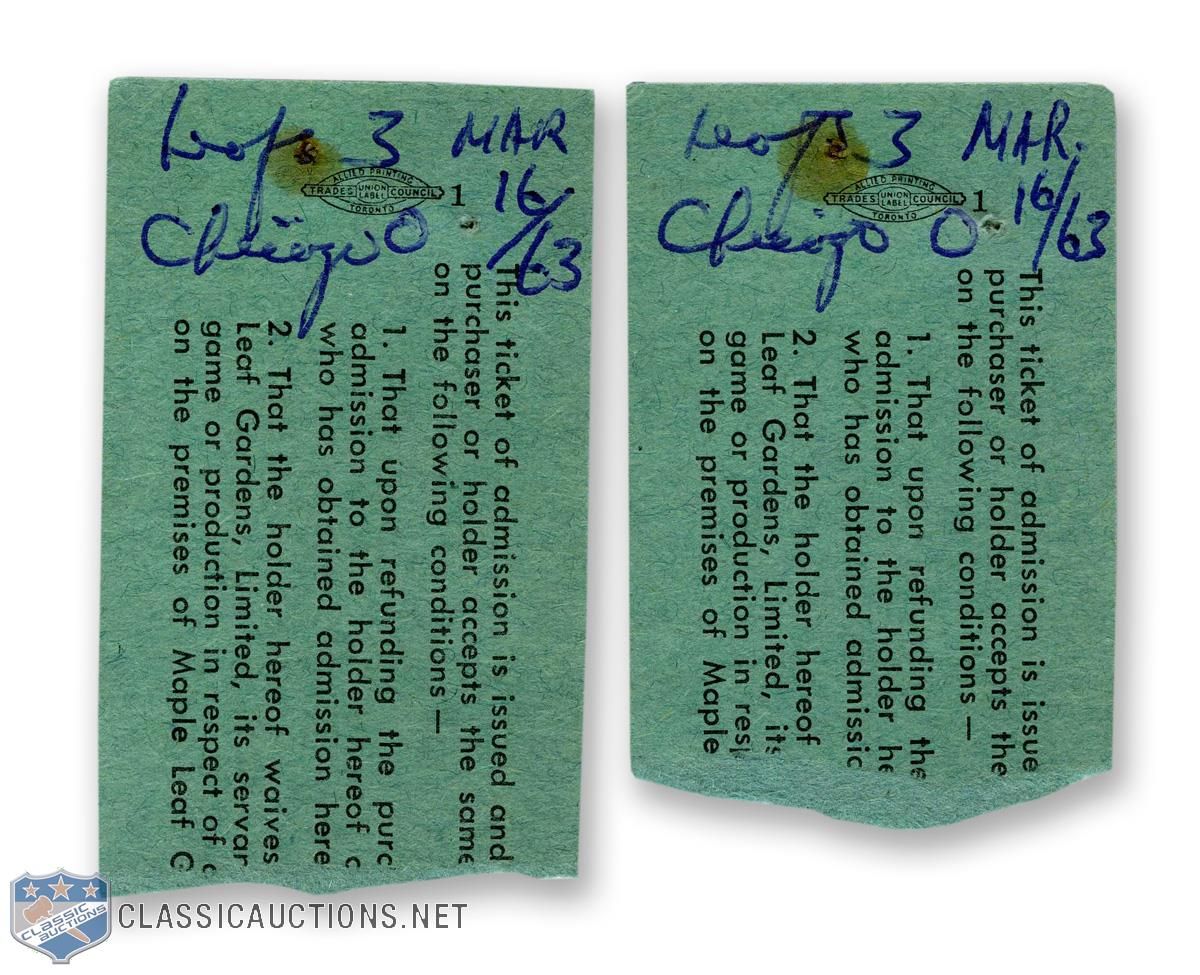 Leafs 3 MAR
16/63
Chicago 0
ALLIED PRINTING
TRADES UNION LABEL COUNCIL 1
TORONTO
This ticket of admission is issued and
purchaser or holder accepts the same
on the following conditions —
1. That upon refunding the purc
admission to the holder hereof c
who has obtained admission here
2. That the holder hereof waives
Leaf Gardens, Limited, its servan
game or production in respect of c
on the premises of Maple Leaf G
Leafs 3 MAR.
16/63
Chicago 0
ALLIED PRINTING
TRADES UNION LABEL COUNCIL 1
TORONTO
This ticket of admission is issue
purchaser or holder accepts the
on the following conditions —
1. That upon refunding the
admission to the holder he
who has obtained admissic
2. That the holder hereof
Leaf Gardens, Limited, its
game or production in resp
on the premises of Maple
CLASSIC
AUCTIONS
CLASSICAUCTIONS.NET